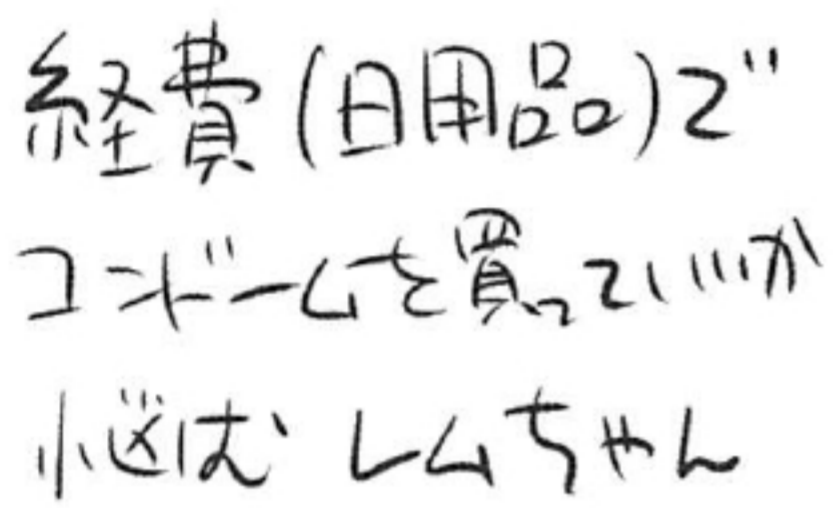 経費(日用品)で
コンドームを買っていいか
悩む レムちゃん